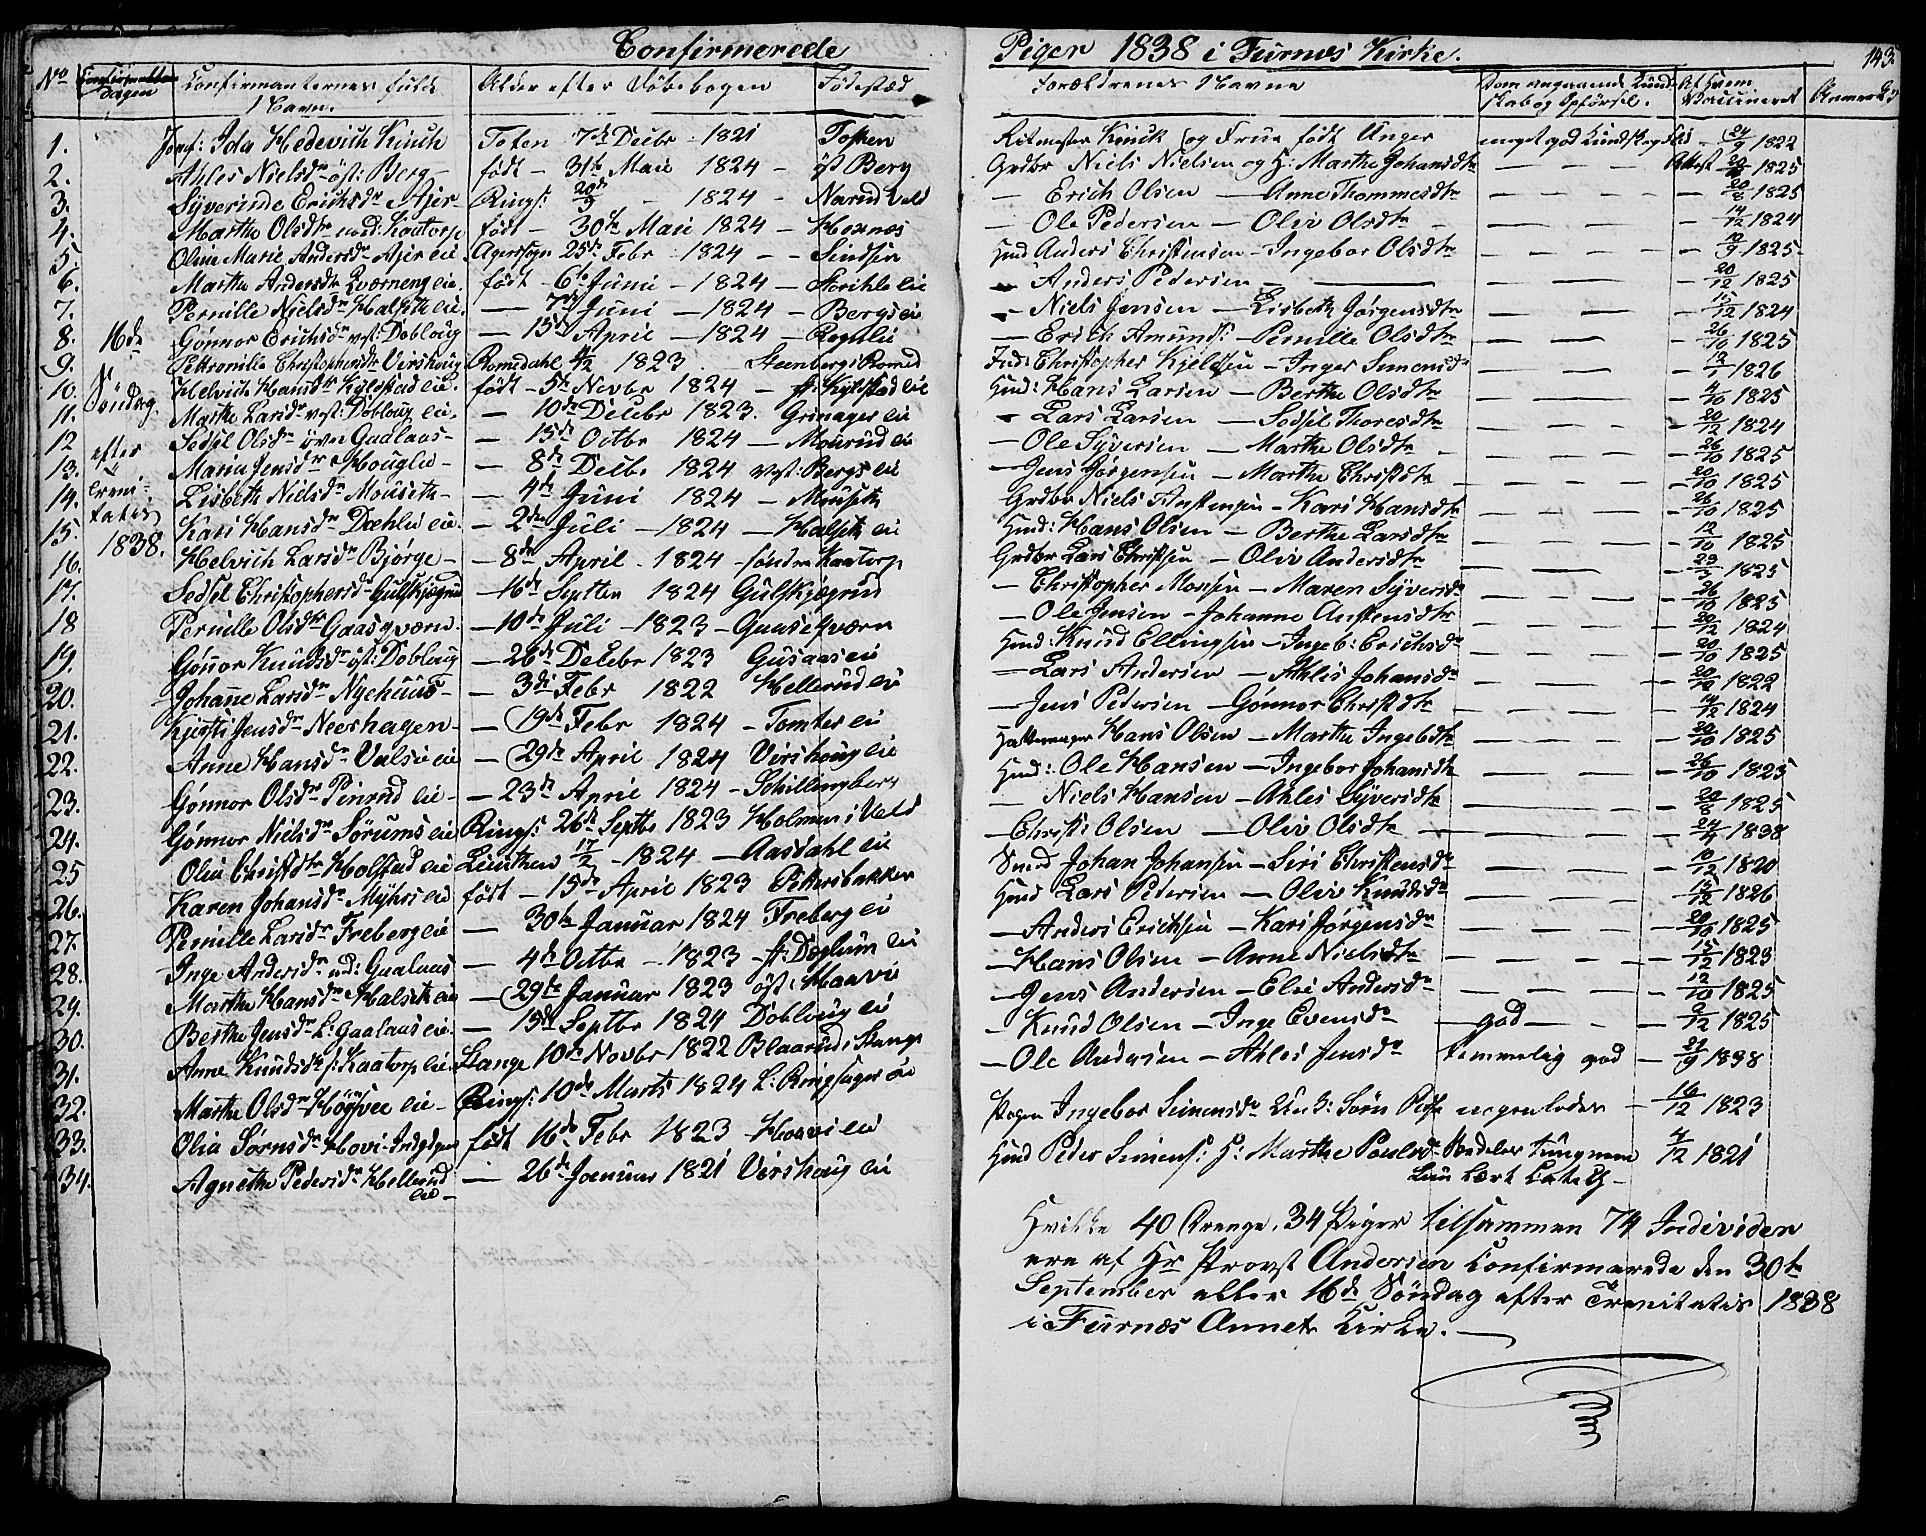 Confirmerede Piger 1838 i Furnæs Kirke.
143
No Confirmations Dagen Confirmanternes fulde Navn. Alder efter Döbebogen Födested Forældrenes Navne Dom angaaende Kundskab og Opförsel. Af hvem Vaccineret
16de Söndag efter Trinitatis 1838.
1. Jomf: Ida Hedevich Kinch Toten 7de Decbr 1821 Ritmester Kinck og Frue født Unger meget god Kundskab 24/9 1822
2. Ahles Nielsdr öst: Berg født 31te Mai 1824 öst Berg Grdbr Niels Nielsen og H: Marthe Johansdtr Attest 1825
3. Syverinde Erichsdr Ajer Rings: 20de/9 1824 Narud Vald Erich Olsen Anne Thommesdtr 20/8 1825
4. Marthe Olsdtr nord: Kaatorp født 30te Mai 1824 Hoxnæs Ole Pedersen Oliv Olsdtr 14/12 1824
5. Oline Marie Andersdr Ajer eie Agersogn 25de Febr 1824 Hmd Anders Christensen Ingebor Olsdtr 1825
6. Marthe Andersdtr Qværneng eie født 6te Juni 1824 Anders Pedersen 20/12 1825
7. Pernille Nielsdr Halseth eie 7de Juni 1824 Bergs ei Niels Jensen Lisbeth Jörgensdtr 1824
8. Gönnor Erichsdr vest: Dobloug 15de April 1824 Erich Amunds: Pernille Olsdtr 26/10 1825
9. Pettronille Christophersdtr Virshoug Romedahl 1823 Steenberg i Romed Inds: Christopher Kjeldsen Inger Simensdr 1826
10. Helvich Hansdtr Kylstad eie født 5te Novbr 1824 Kylstad eie Hmd: Hans Larsen Berthe Olsdtr 4/10 1825
11. Marthe Larsdr vest: Dobloug eie 10de Decbr 1823. Grimager eie Lars Larsen Sedsel Thoresdtr 20/12 1824
12 Sedsel Olsdr övre Gaalaas 15de Octbr 1824 Mourud ei Ole Syversen Marthe Olsdtr 26/10 1825
13. Maria Jensdr Houglie 8de Decbr 1824 vest: Bergs eie Jens Jörgensen Marthe Christdtr 20/10 1825
14. Lisbeth Nielsdr Mouseth 4de Juni 1824 Mouseth Grdbr Niels Anstensen Kari Hansdtr 26/10 1825
15. Kari Hansdr Dæhlie eie 2den Juli 1824 Halseth eie Hmd: Hans Olsen Berthe Larsdtr 12/10 1825
16. Helvich Larsdr Bjørge 8de April 1824 söndre Kaatorp Grdbr Lars Christsen Oliv Andersdtr 1825
17. Sedsel Christophersdr Gulskjægrud 16de Septbr 1824 Gulskjægrud Christopher Monsen Maren Syversdr 26/10 1825
18 Pernille Olsdtr Gaasqværn 10de Juli 1823 Gaaseqværn Ole Jensen Johanne Anstensdtr 20/12 1824
19. Gönnor Knudsdr öst: Dobloug 26de Decbr 1823 Gusaas ei Hmd: Knud Ellingsen Ingeb: Erichsdr 20/10 1825
20. Johane Larsdr Nyehuus 3de Febr 1822 Hellerud ei Lars Andersen Ahles Johansdr 20/12 1822
21. Kjersti Jensdr Neershagen 19de Febr 1824 Tomter eie Jens Pedersen Gönnor Christdtr 14/12 1824
22. Anne Hansdr Valsie eie 29de April 1824 Virshoug eie Hattemager Hans Olsen Marthe Ingebdtr 20/10 1825
23. Gönnor Olsdr Penrud eie 23de April 1824 Schillingberg Hmd: Ole Hansen Ingebor Johansdtr 26/10 1825
24. Gönnor Nielsdr Sörums eie Rings: 26de Septbr 1823 Holmen i Vald Niels Hansen Ahles Syversdtr 1825
25 Olia Christdtr Holstad eie Leuthen 17/2 1824 Aasdahl eie Christ: Olsen Oliv Olsdtr 1838
26. Karen Johansdr Myhrs eie født 15de April 1823 Pettersbakken Smed Johan Johansen Siri Christensdr 10/12 1820
27. Pernille Larsdr Freberg eie 30te Januar 1824 Freberg ei Hmd Lars Pedersen Oliv Knudsdr 1826
28. Inge Andersdr nd: Gaalaas 4de Octbr 1823 Anders Erichsen Kari Jörgensdr 20/10 1825
29. Marthe Hansdr Halseth eie 29de Januar 1823 öst: Haavi Hans Olsen Anne Nielsdtr 15/12 1823
30. Berthe Jensdr L: Gaalaas eie 15de Septbr 1824 Dobloug ei Jens Andersen Else Andersdr 12/10 1825
31. Anne Knudsdr s: Kaatorp eie Stange 10de Novbr 1822 Blaarud i Stange Knud Olsen Inge Evensdr god 1825
32. Marthe Olsdr Höysvee eie Rings: 10de Marts 1824 L: Ringsager eie Ole Andersen Ahles Jensdr temmelig god 1838
33. Olia Sörnsdr Hovi Indgdpen født 16de Febr 1823 Hoxvi eie Pigen Ingebor Simensdr Sörn 16/12 1823
34. Agnethe Pedersdr Hellerud eie 26de Januar 1821 Virshoug eie Hmd Peder Simens: H: Marthe Paulsdr Kun lært 4/12 1821
Hvilke 40 Drenge, 34 Piger tilsammen 74 Individer
ere af Hr Provst Andersen Confirmerede den 30te
September eller 16de Söndag efter Trenitatis 1838
i Furnæs Annex Kirke.